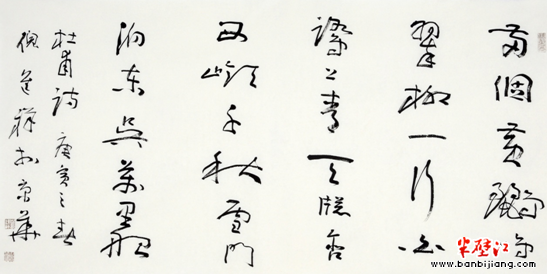 兩個黃鸝鳴
翠柳一行白
鷺上青天窓含
西嶺千秋雪門
泊東吳萬里船
杜甫詩 庚寅之春
祥於京華
半壁江
www.banbijiang.com